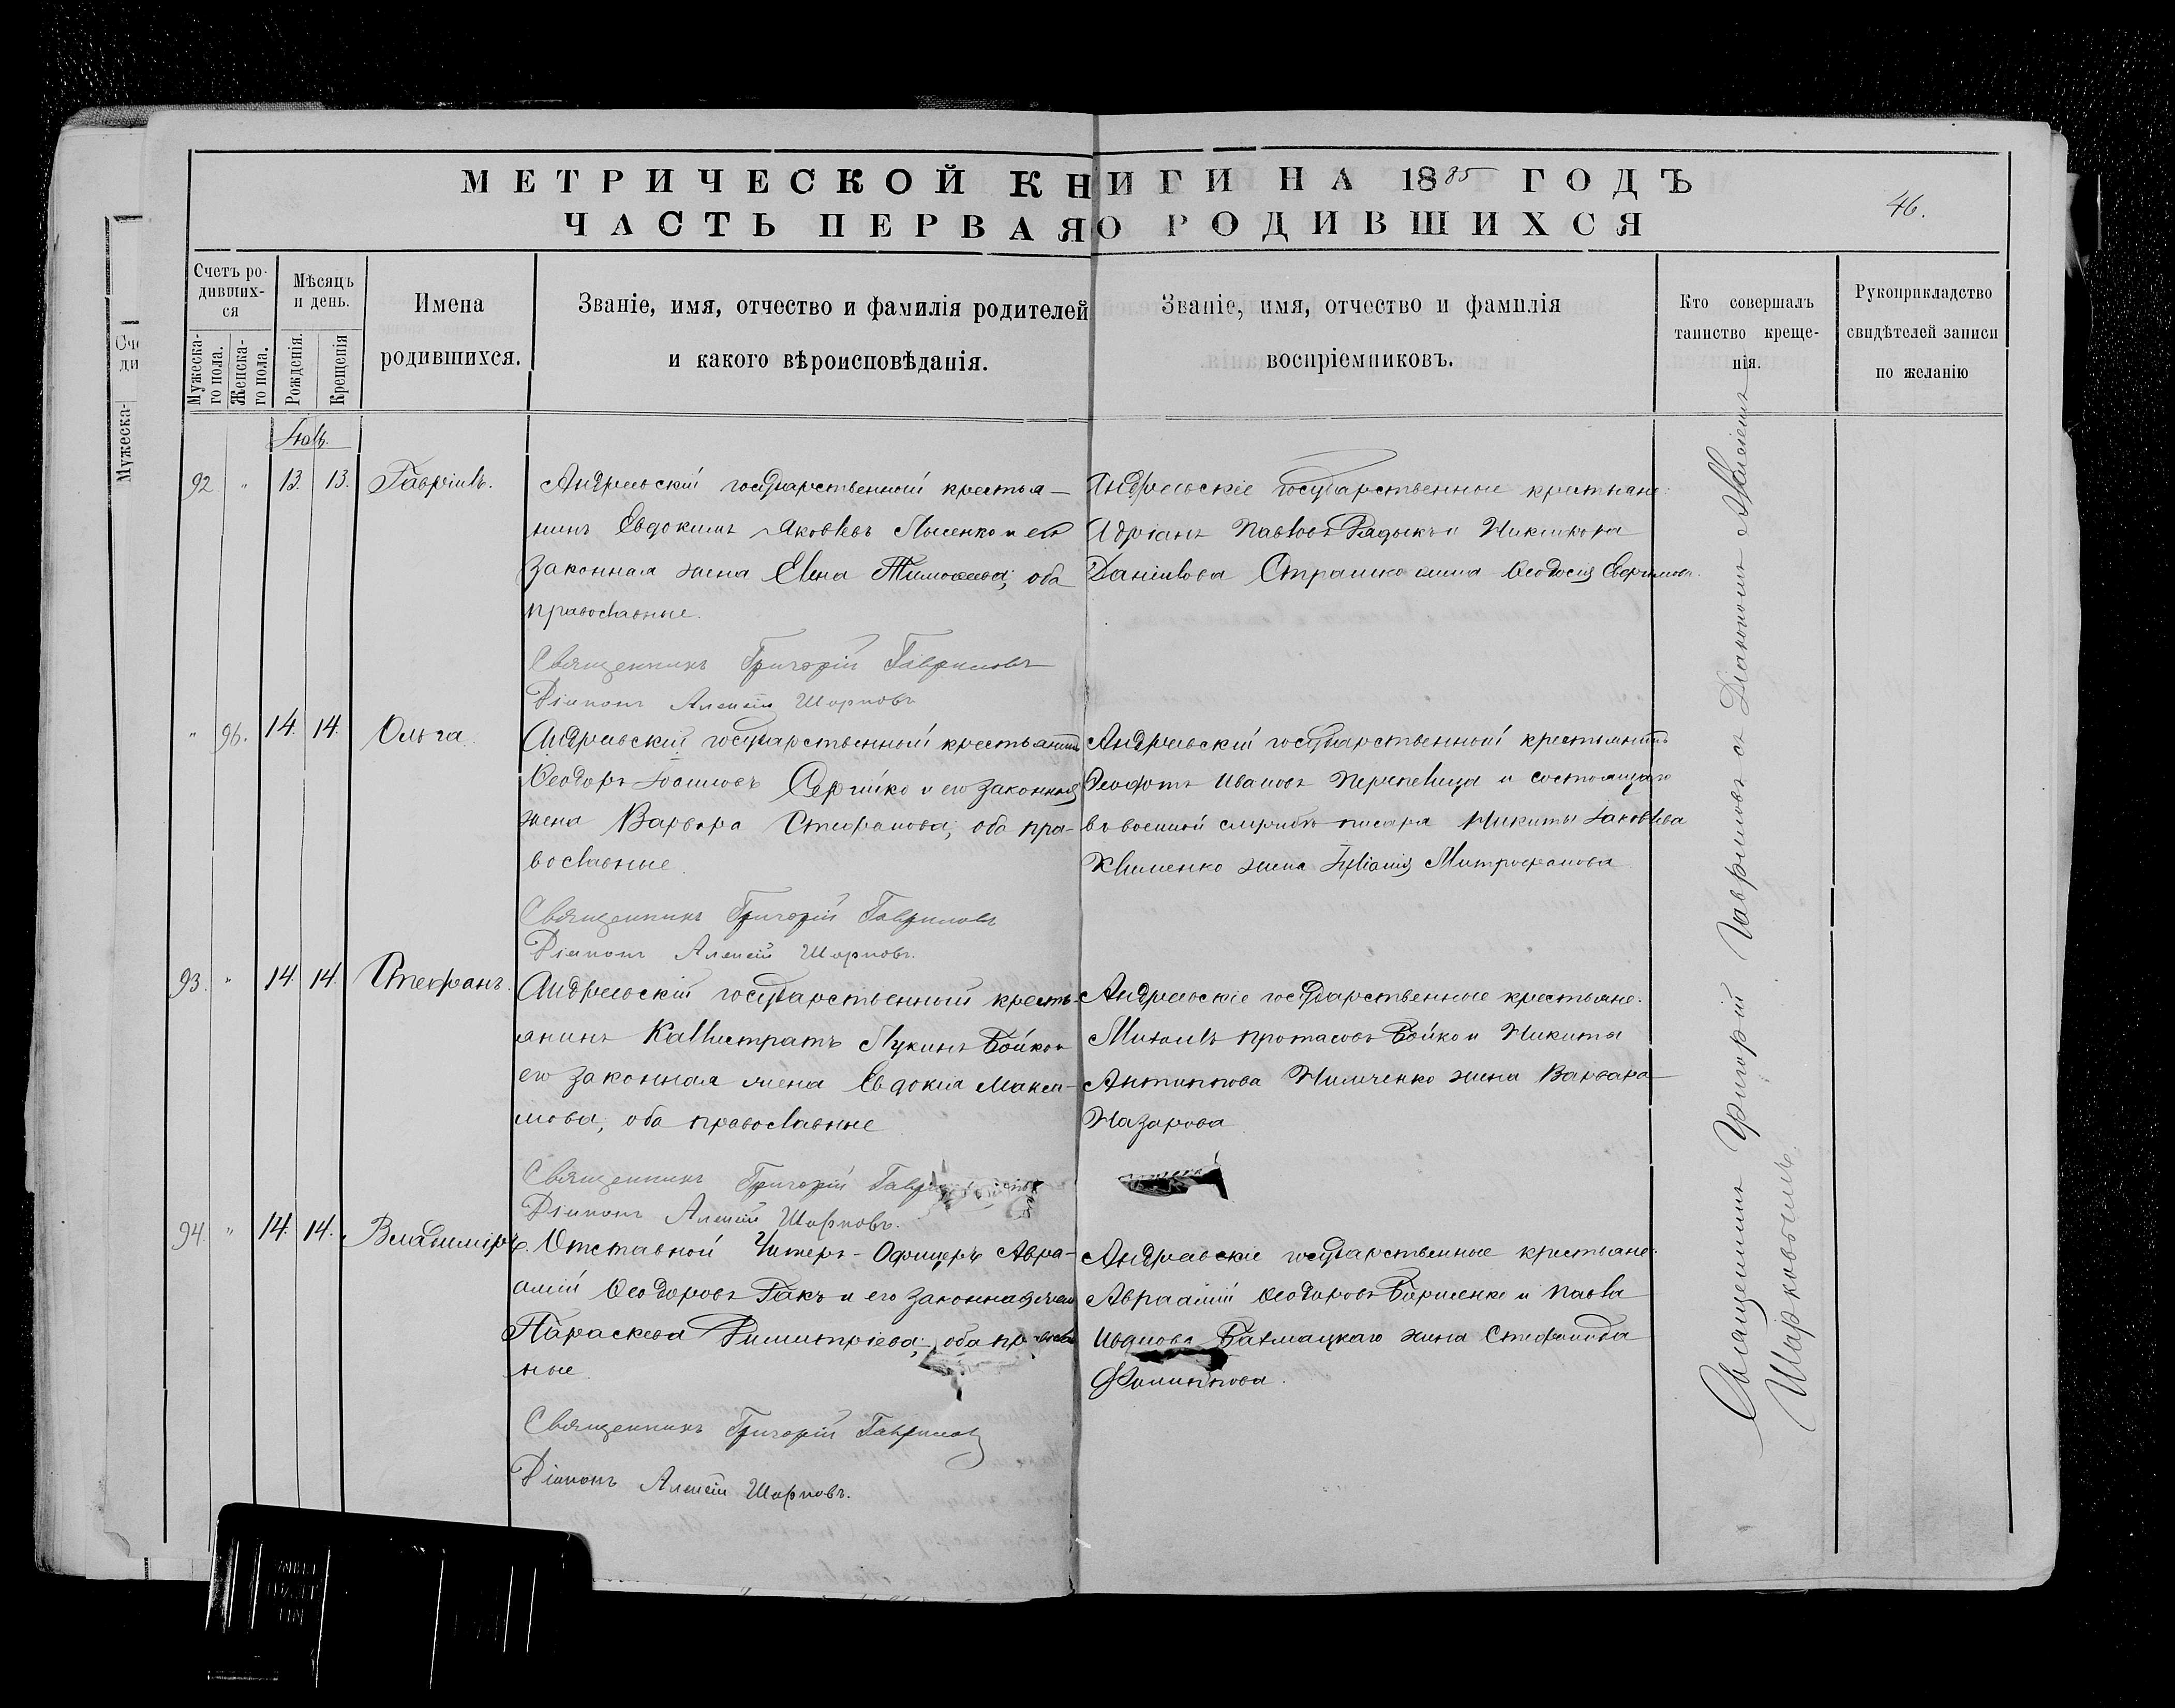 МЕТРИЧЕСКОЙ КНИГИ НА 1885 ГОДЪ
46.
ЧАСТЬ ПЕРВАЯ О РОДИВШИХСЯ
Счетъ ро-
дивших-
ся
Мужеска-
го пола.
Женска-
го пола.
Мѣсяцъ
и день.
Рожденія.
Крещенія
Имена
родившихся.
Званіе, имя, отчество и фамилія родителей
и какого вѣроисповѣданія.
Званіе, имя, отчество и фамилія
воспріемниковъ.
Кто совершалъ
таинство креще-
нія.
Рукоприкладство
свидѣтелей записи
по желанію
92 " 13. 13. Гавріилъ.
Андреевскій государственный крестья-
нинъ Евдокимъ Яковлевъ Лысенко и его
законная жена Елена Тимоѳеева; оба
православные.
Андреевскіе государственные крестьяне:
Адріанъ Павловъ и
Даніилова жена Ѳеодосія
Священникъ Григорій Гавриловъ
Діаконъ Алексій Шарковъ
" 96. 14. 14. Ольга.
Андреевскій государственный крестьянинъ
Ѳеодоръ Сергійко и его законная
жена Варвара Стефанова; оба пра-
вославные.
Андреевскій государственный крестьянинъ
Ивановъ Перепелица и состоящаго
въ военной службѣ писаря Никиты Іаковлева
Клименко жена Митрофанова
Священникъ Григорій Гавриловъ
Діаконъ Алексій Шарковъ.
93. " 14. 14. Стефанъ.
Андреевскій государственный кресть-
янинъ Каллистратъ Лукинъ Бойко и
его законная жена Евдокія Макси-
мова; оба православные
Андреевскіе государственные крестьяне:
Михаилъ Протасовъ Бойко и Никиты
Антиппова жена Варвара
Назарова
Священникъ Григорій
Діаконъ Алексій Шарковъ.
94. " 14. 14. Владиміръ.
Отставной Унтеръ-Офицеръ Авра-
амій Ѳеодоровъ Гакъ и его законная жена
Параскева Димитріева; оба
ные.
Андреевскіе государственные крестьяне:
Авраамій Ѳеодоровъ Борисенко и Павла
Иванова жена Стефанида
Филиппова.
Священникъ Григорій Гавриловъ
Діаконъ Алексій Шарковъ.
Священникъ Григорій Гавриловъ съ Діакономъ Алексіемъ
Шарковымъ.